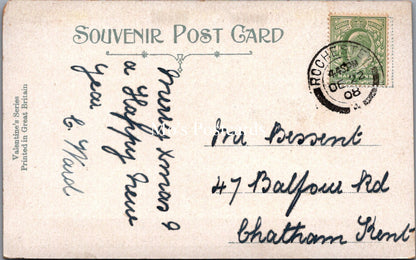 SOUVENIR POST CARD
Valentine's Series
Printed in Great Britain
Merry Xmas &
a Happy New
Year
E Ward
HALFPENNY
ROCHESTER
DE 2
08
Mr Bessent
47 Balfour Rd
Chatham Kent